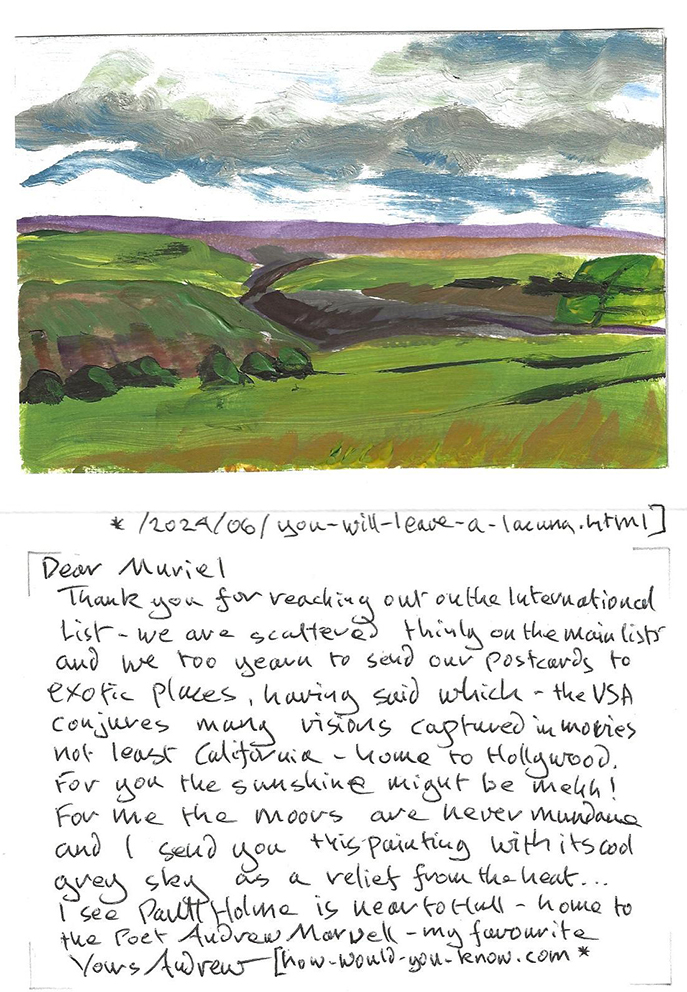 * /2024/06/you-will-leave-a-lacuna.html]
Dear Muriel
Thank you for reaching out on the International
List - we are scattered thinly on the main lists
and we too yearn to send our postcards to
exotic places, having said which - the USA
conjures many visions captured in movies
not least California - home to Hollywood.
For you the sunshine might be mehh!
For me the moors are never mundane
and I send you this painting with its cool
grey sky as a relief from the heat...
I see Paull Holme is near to Hull - home to
the Poet Andrew Marvell - my favourite
Yours Andrew - [how-would-you-know.com *